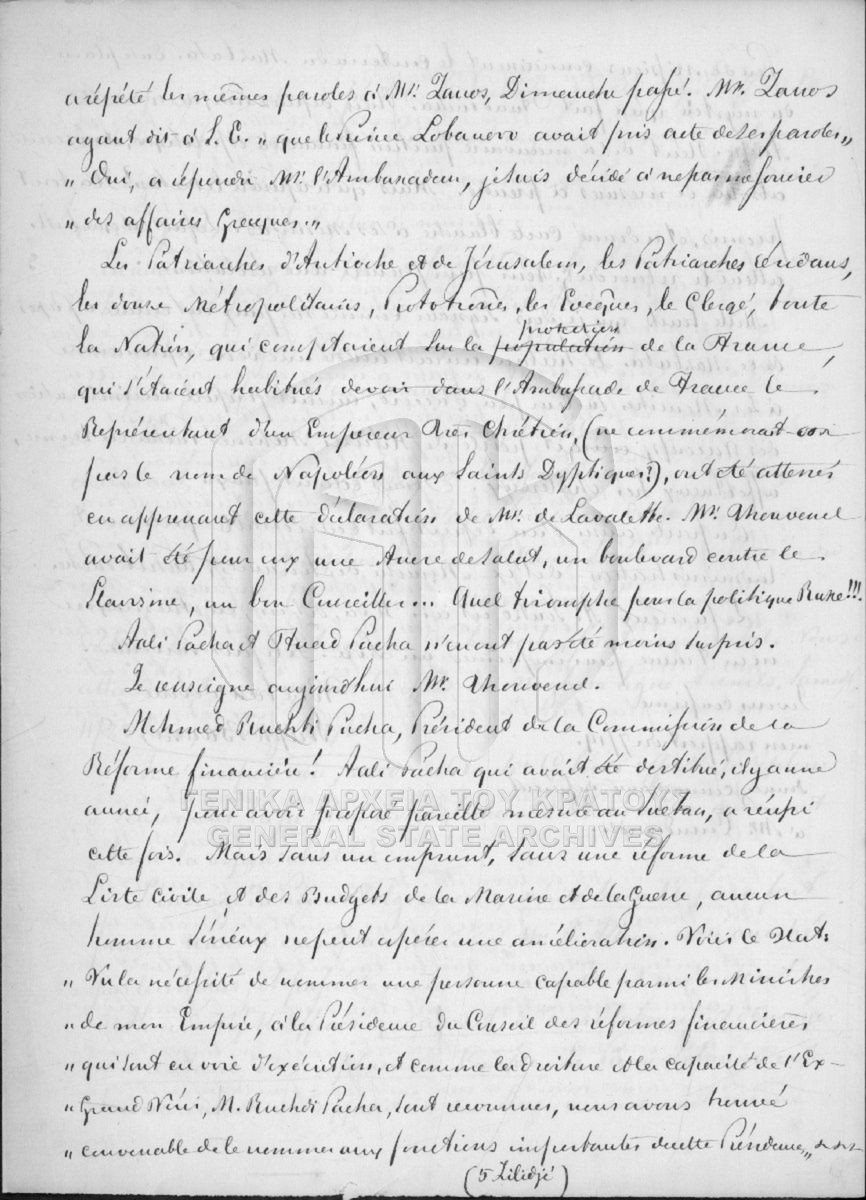 a répété les mêmes paroles à Mr. Zanos, Dimanche passé. Mr. Zanos
ayant dit à S. E. „ que le Prince Lobanow avait pris acte de ses paroles„
„ Oui, a répondu Mr. l'Ambassadeur, je suis décidé à ne pas me soucier
„ des affaires Grecques.„
Les Patriarches d'Antioche et de Jérusalem, les Patriarches résidans,
les douze Métropolitains, les Evêques, le Clergé, toute
protection
la Nation, qui comptaient sur la population de la France,
qui s'étaient habitués de voir dans l'Ambassade de France le
Représentant d'un Empereur Très Chrétien, (ne commémorait-on
pas le nom de Napoléon aux Saints Dyptiques?), ont été atterrés
en apprenant cette déclaration de Mr. de Lavalette. Mr. Thouvenel
avait été pour eux une Ancre de salut, un boulevard contre le
Slavisme, un bon Conseiller... Quel triomphe pour la politique Russe!!!
Aali Pacha et Fuad Pacha n'en ont pas été moins surpris.
Je renseigne aujourd'hui Mr. Thouvenel.
Mehmed Ruchdi Pacha, Président de la Commission de la
Réforme financière! Aali Pacha qui avait été destitué, il y a une
année, pour avoir proposé pareille mesure au Sultan, a réussi
cette fois. Mais sans un emprunt, sans une réforme de la
Liste civile et des Budgets de la Marine et de la Guerre, aucun
homme sérieux ne peut opérer une amélioration. Voici le Hat:
„ Vu la nécessité de nommer une personne capable parmi les Ministres
„ de mon Empire, à la Présidence du Conseil des réformes financières
„ qui sont en voie d'exécution, et comme la droiture et la capacité de l'Ex-
„ Grand Vézir, M. Ruchdi Pacha, sont reconnues, nous avons trouvé
„ convenable de le nommer aux fonctions importantes de cette Présidence„
(5 Zilidjé)
ΓΕΝΙΚΑ ΑΡΧΕΙΑ ΤΟΥ ΚΡΑΤΟΥΣ
GENERAL STATE ARCHIVES